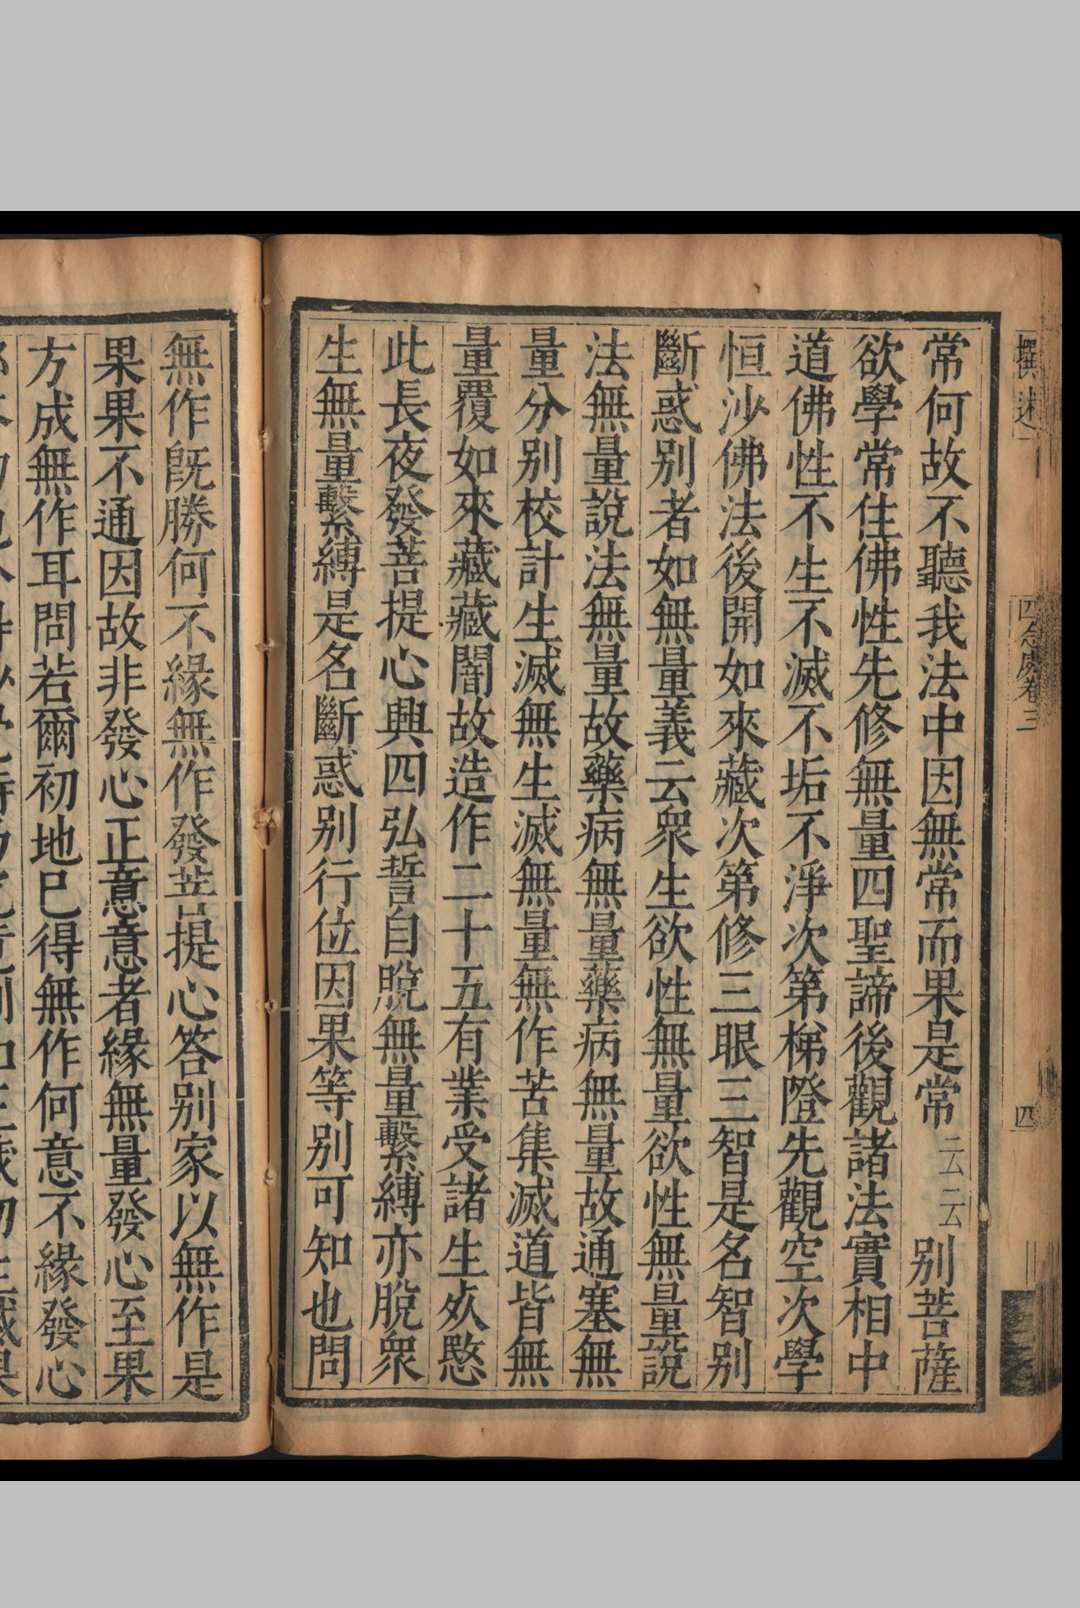 撰述
四念處卷三
四
常何故不聽我法中因無常而果是常云云别菩薩
欲學常住佛性先修無量四聖諦後觀諸法實相中
道佛性不生不滅不垢不淨次第梯隥先觀空次學
恒沙佛法後開如來藏次第修三眼三智是名智别
斷惑别者如無量義云衆生欲性無量欲性無量說
法無量說法無量故藥病無量藥病無量故通塞無
量分别校計生滅無生滅無量無作苦集滅道皆無
量覆如來藏藏闇故造作二十五有業受諸生死愍
此長夜發菩提心興四弘誓自脫無量繫縛亦脫衆
生無量繫縛是名斷惑别行位因果等别可知也問
無作旣勝何不緣無作發菩提心答别家以無作是
果果不通因故非發心正意意者緣無量發心至果
方成無作耳問若爾初地巳得無作何意不緣發心